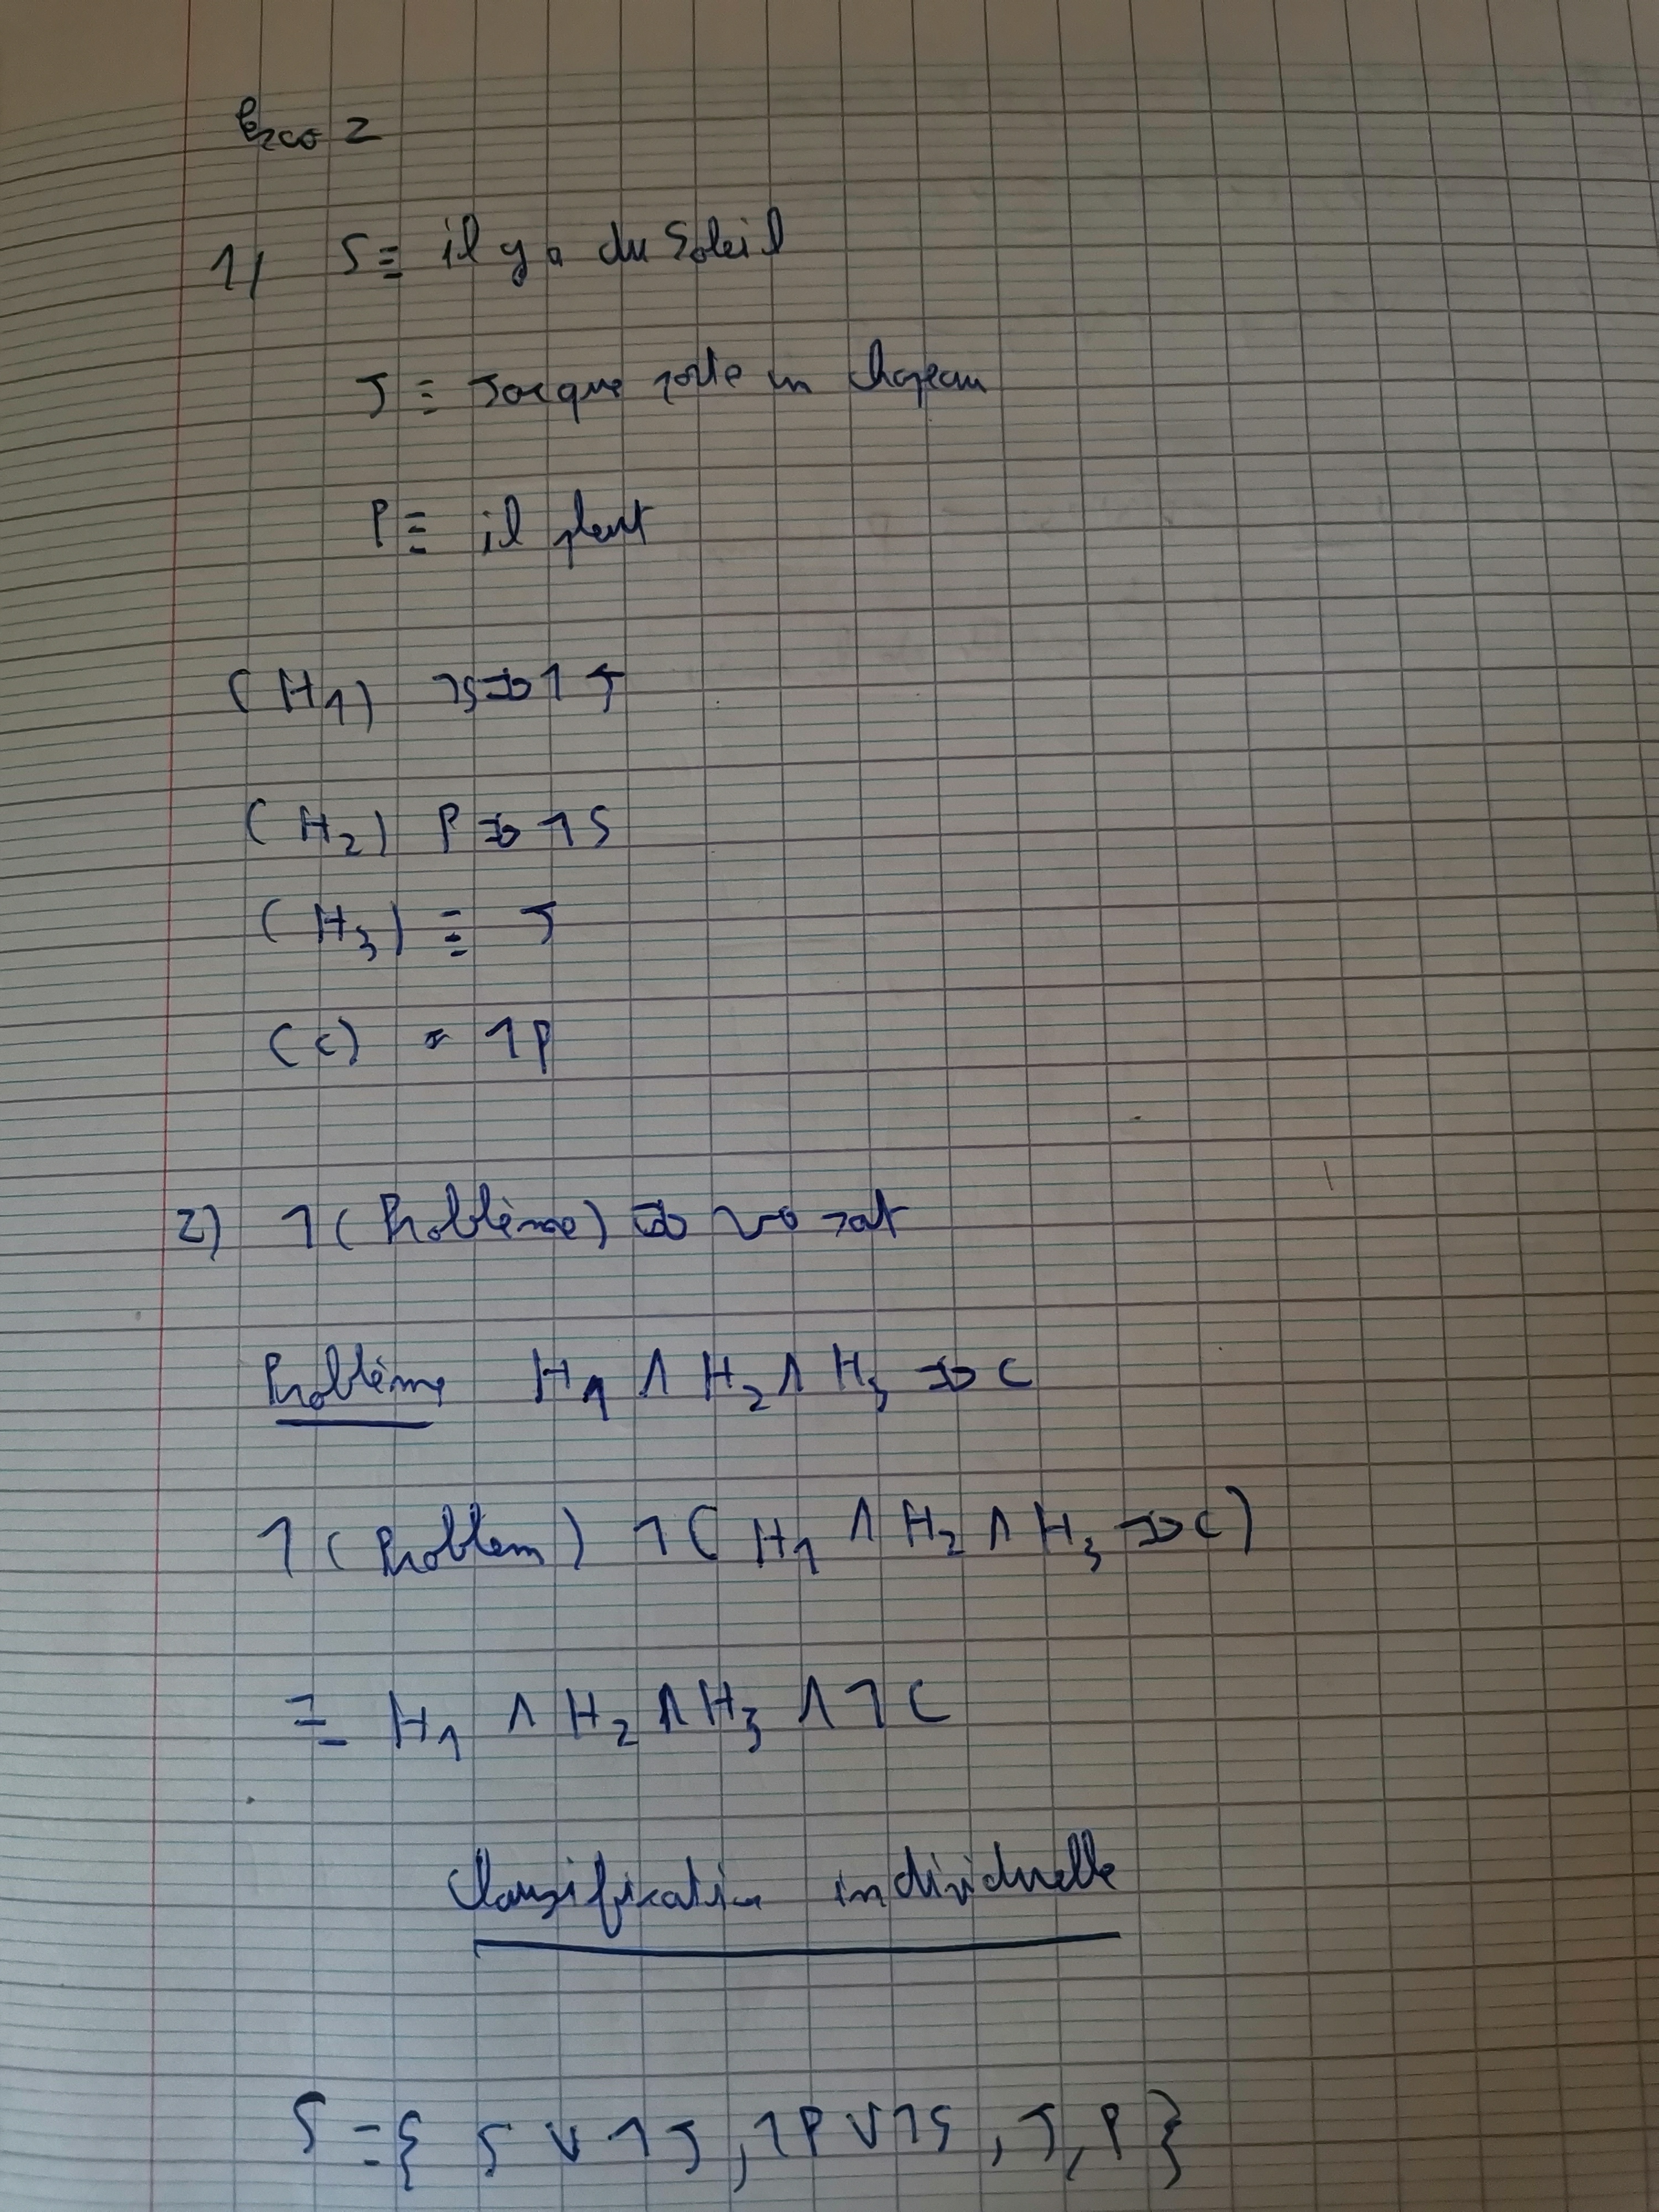 Exco 2
1/ S ≡ il y a du Soleil
J ≡ Jacque porte un chapeau
P ≡ il pleut
(H1) ¬S => ¬J
(H2) P => ¬S
(H3) ≡ J
(C) = ¬P
2) ¬(Problème) =>
Problème H1 ∧ H2 ∧ H3 => C
¬(Problem) ¬(H1 ∧ H2 ∧ H3 => C)
≡ H1 ∧ H2 ∧ H3 ∧ ¬C
Clausification individuelle
S = { S ∨ ¬J, ¬P ∨ ¬S, J, P }